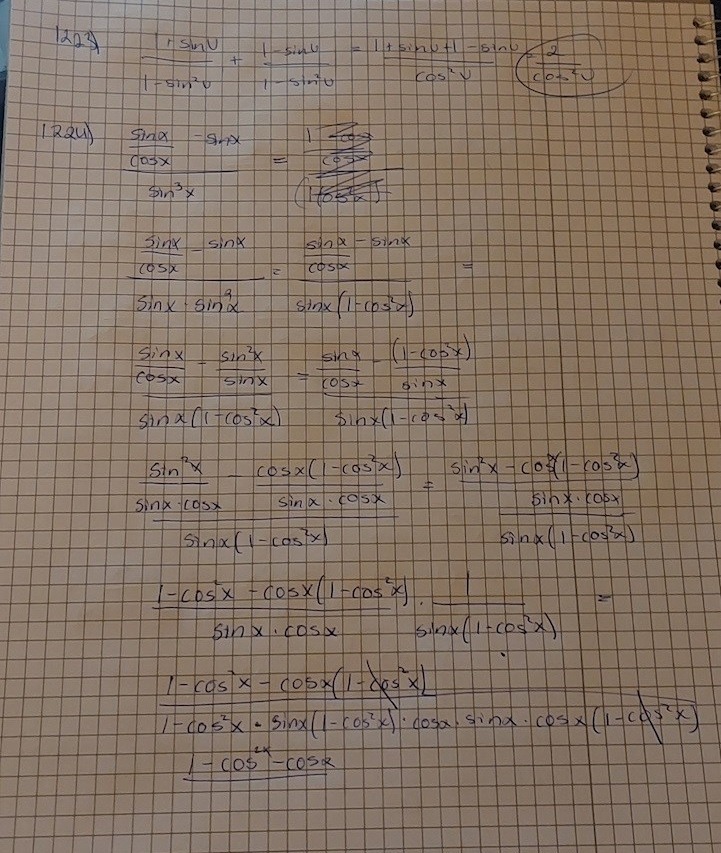 1223) (1+sinv)/(1-sin²v) + (1-sinv)/(1-sin²v) = (1+sinv+1-sinv)/(cos²v) = 2/(cos²v)
1224) (sinx/cosx - sinx)/(sin³x) =
(sinx/cosx - sinx)/(sinx · sin²x) = (sinx/cosx - sinx)/(sinx(1-cos²x)) =
(sinx/cosx - sin²x/sinx)/(sinx(1-cos²x)) = (sinx/cosx - (1-cos²x)/sinx)/(sinx(1-cos²x))
(sin²x/(sinx·cosx) - cosx(1-cos²x)/(sinx·cosx))/(sinx(1-cos²x)) = ((sin²x - cosx(1-cos²x))/(sinx·cosx))/(sinx(1-cos²x))
(1-cos²x - cosx(1-cos²x))/(sinx·cosx) · 1/(sinx(1-cos²x)) =
(1-cos²x - cosx(1-cos²x))/(1-cos²x · sinx(1-cos²x) · cosx · sinx · cosx(1-cos²x))
1-cos²x-cosx